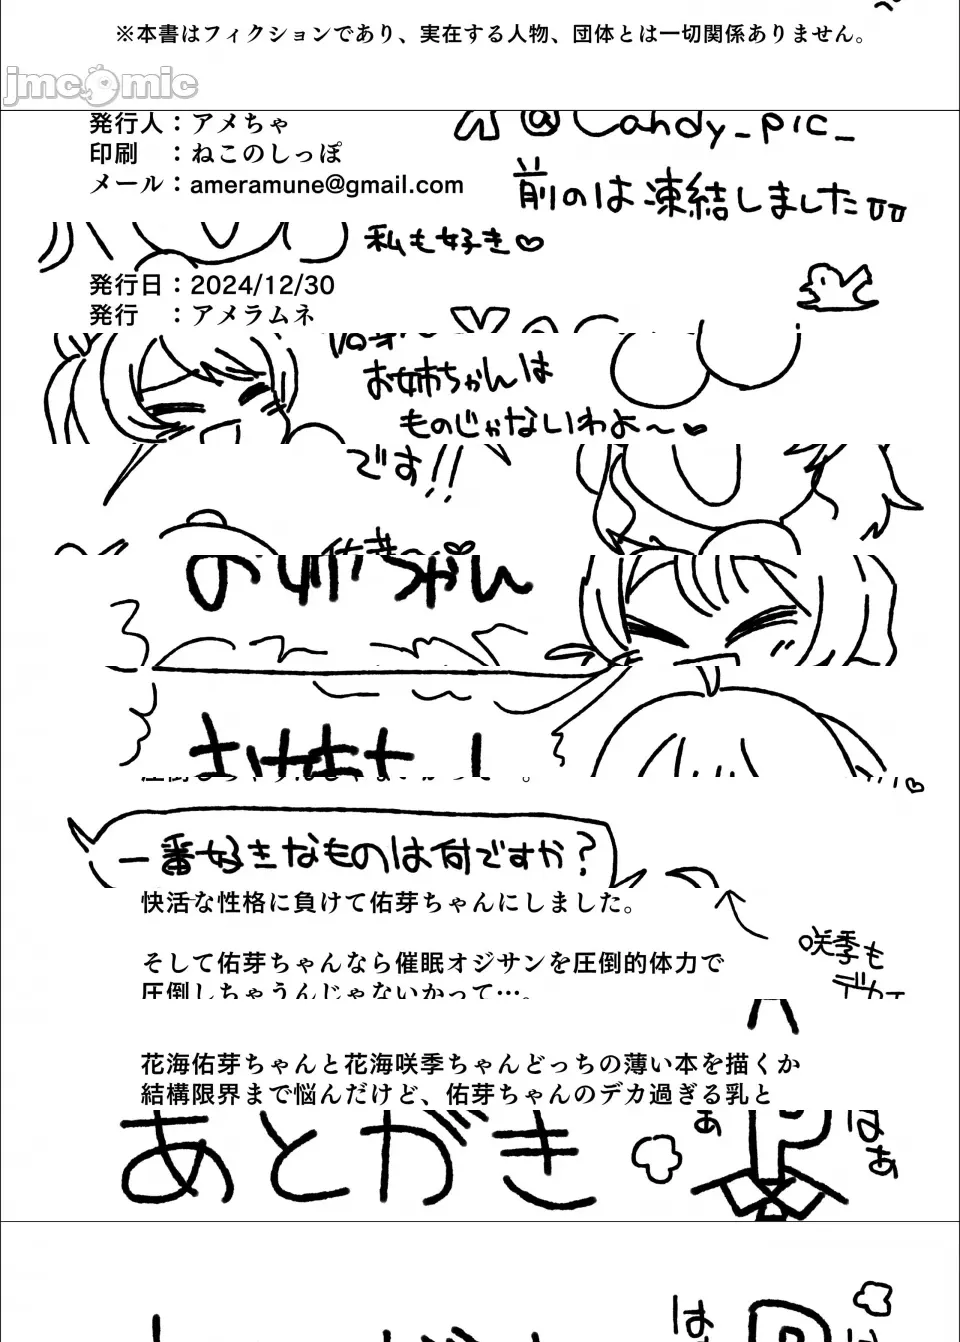 ※本書はフィクションであり、実在する人物、団体とは一切関係ありません。
jmcomic
発行人：アメちゃ
@Candy_pic_
印刷　：ねこのしっぽ
メール：ameramune@gmail.com
前のは凍結しました
私も好き♡
発行日：2024/12/30
発行　：アメラムネ
お姉ちゃんは
ものじゃないわよ～♥
です!!
ちゃん
一番好きなものは何ですか?
快活な性格に負けて佑芽ちゃんにしました。
咲季も
デカ
そして佑芽ちゃんなら催眠オジサンを圧倒的体力で
圧倒しちゃうんじゃないかって…。
花海佑芽ちゃんと花海咲季ちゃんどっちの薄い本を描くか
結構限界まで悩んだけど、佑芽ちゃんのデカ過ぎる乳と
あとがき
P
ぁ
はぁ
は